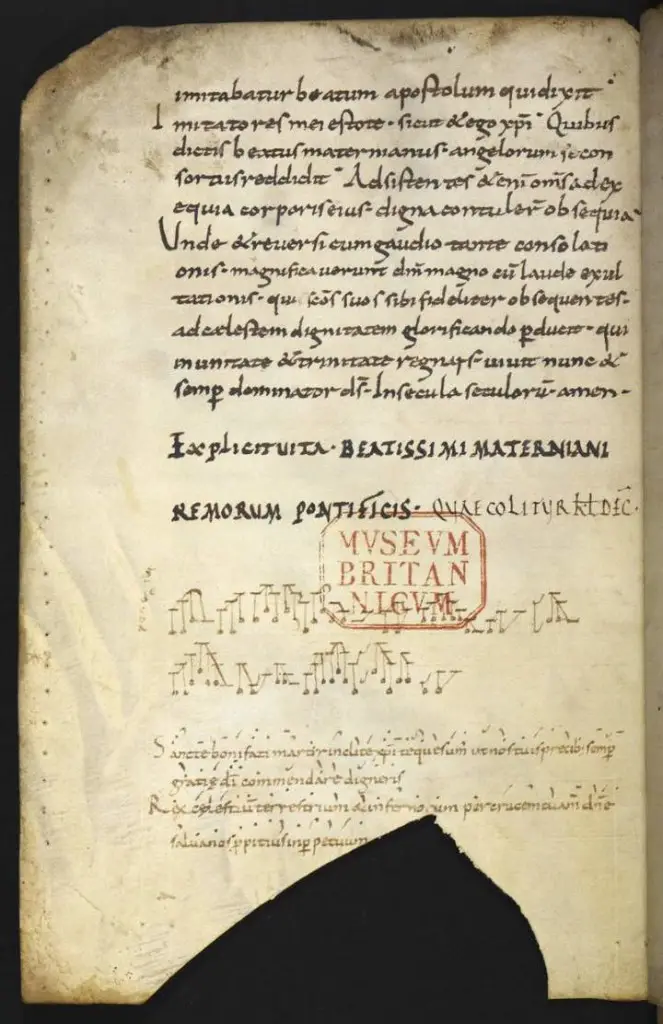 imitabatur beatum apostolum qui dixit
Imitatores mei estote · sicut & ego xp̄i Quibus
dictis beatus maternianus · angelorum se con
sortiis reddidit Adsistentes & eni oms ad ex
equia corporis eius · digna contuler̄ obsequia
Unde & reversi cum gaudio tante consolati
onis · magnificaverunt dm̄ magno cū laude exul
tationis · qui sc̄os suos sibi fideliter obsequentes ·
ad cælestem dignitatem glorificando ꝑducit · qui
in unitate & trinitate regnans · vivit nunc &
semꝑ dominator ds̄ · In secula seculorū · amen ·
Explicit uita · BEATISSIMI MATERNIANI
REMORUM PONTIFICIS · QUAE COLITUR KL DEC ·
MVSEVM
BRITAN
NICVM
Sancte bonifati martir inclite xp̄i te quesum̄ ut nos tuis precib; semꝑ
gratie dī commendare digneris
Rex celestiū terrestrium & infernorum per crucem tuam dn̄e
salva nos ꝓpitius in ꝑpetuum